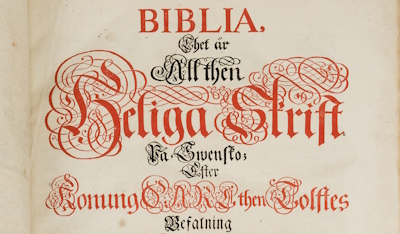 BIBLIA,
Thet är
All then
Heliga Skrift
På Swensko;
Efter
Konung CARL then Tolftes
Befalning